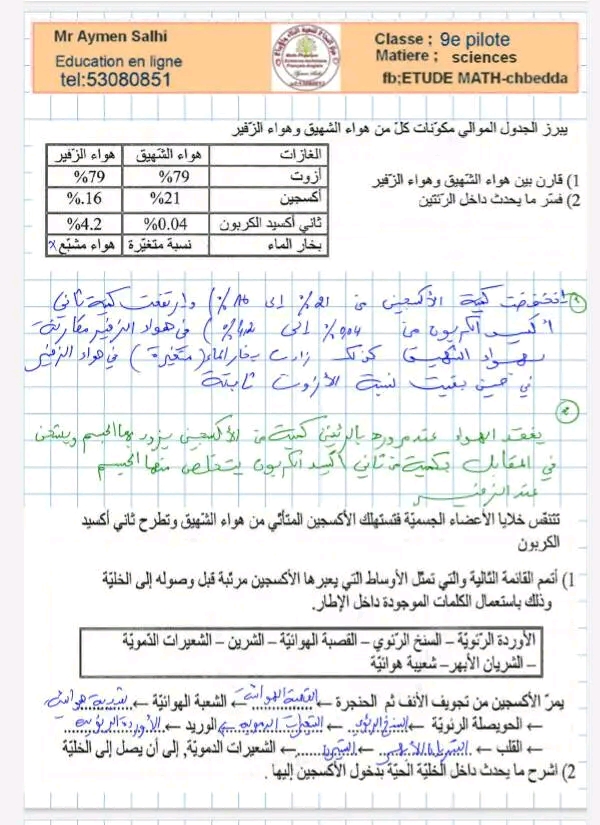 Mr Aymen Salhi
Education en ligne
tel:53080851
Classe ; 9e pilote
Matiere ; sciences
fb;ETUDE MATH-chbedda
يبرز الجدول الموالي مكوّنات كلّ من هواء الشهيق وهواء الزّفير
الغازات هواء الشّهيق هواء الزّفير
أزوت %79 %79
أكسجين %21 %.16
ثاني أكسيد الكربون %0.04 %4.2
بخار الماء نسبة متغيّرة هواء مشبّع
1) قارن بين هواء الشّهيق وهواء الزّفير
2) فسّر ما يحدث داخل الرّئتين
انخفضت كمية الأكسجين من 21% إلى 16% وارتفعت كمية ثاني
أكسيد الكربون من 0,04% إلى 4,2% في هواء الزفير مقارنة
بهواء الشهيق كذلك زادت بخار الماء (متغيرة) في هواء الزفير
في حين بقيت نسبة الأزوت ثابتة
يفقد الهواء عند مروره بالرئتين كمية من الأكسجين يزود بها الجسم ويشحن
في المقابل بكمية من ثاني أكسيد الكربون يتخلص منها الجسم
عند الزفير
تتنفس خلايا الأعضاء الجسميّة فتستهلك الأكسجين المتأتّي من هواء الشّهيق وتطرح ثاني أكسيد
الكربون
1) أتمم القائمة التّالية والتي تمثّل الأوساط التي يعبرها الأكسجين مرتّبة قبل وصوله إلى الخليّة
وذلك باستعمال الكلمات الموجودة داخل الإطار.
الأوردة الرّئويّة – السنخ الرّئوي – القصبة الهوائيّة – الشرين – الشعيرات الدّمويّة
– الشريان الأبهر – شعيبة هوائيّة
يمرّ الأكسجين من تجويف الأنف ثم الحنجرة ← القصبة الهوائية ← الشعبة الهوائيّة ← شعيبة هوائية
← الحويصلة الرئويّة ← السنخ الرئوي ← الشعيرات الدموية ← الوريد ← الأوردة الرئوية
← القلب ← الشريان الأبهر ← الشرين ← الشعيرات الدمويّة, إلى أن يصل إلى الخليّة
2) اشرح ما يحدث داخل الخليّة الحيّة بدخول الأكسجين إليها .